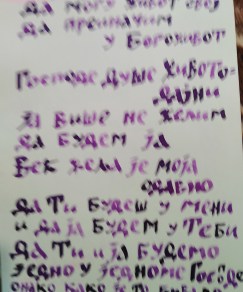 да могу живот свој
да преиначим
у Богоживот
Господе Душе Живото-
дајни
Ја више не желим
да будем ја
Век жеља је моја
одавно
да Ти будеш у мени
и да ја будем у Теби
да Ти и ја будемо
једно у једноме Господе
онако како је то